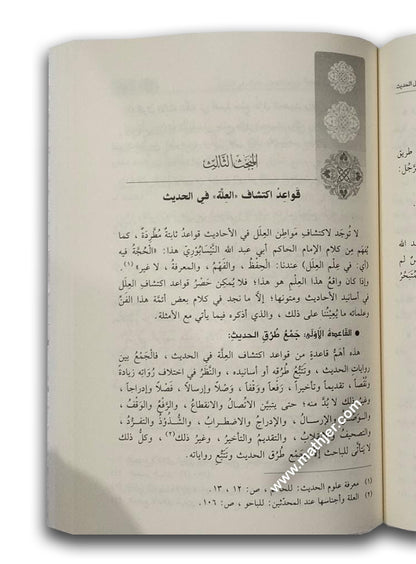 المبحث الثالث
قواعد اكتشاف «العلة» في الحديث
لا تُوجَد لاكتشافِ مَواطِن العِلَل في الأحاديث قواعدُ ثابتةٌ مُطَّرِدَةٌ ، كما
يُفهَم مِن كلام الإمام الحاكم أبي عبد الله النَّيْسَابُوْرِيّ هذا: «الحُجَّةُ فيه
(أي: في عِلْم العِلَل) عندنا: الحِفْظُ ، والفَهْمُ ، والمعرفة ، لا غير»(١).
وإذا كان واقعُ هذا العِلْمِ هو هذا؛ فلا يُمكِن حَصْرُ قواعدِ اكتشافِ العِلَل
في أسانيد الأحاديث ومتونها؛ إلَّا ما نجد في كلام بعض أئمّة هذا الفنِّ
وعلمائه ما يُعِيْنُنا على ذلك ، والذي أذكره فيما يأتي مع الأمثلة.
• القاعدة الأولى: جَمْعُ طُرُقِ الحديث:
هذه أهَمُّ قاعدةٍ من قواعد اكتشاف العِلَّة في الحديث ، فالْجَمْعُ بين
رواياتِ الحديثِ ، وتَتَبُّعُ طُرُقِه أو أسانيده ، والنَّظَرُ في اختلاف رُوَاتِه زيادةً
ونَقْصاً ، تقديماً وتأخيراً ، رَفعاً ووَقْفاً ، وَصْلاً وإرسالاً ، فَصْلاً وإدراجاً ،
وغير ذلك لا بُدَّ منه؛ حتى يتبيَّن الاتِّصالُ والانقطاعُ ، والرَّفْعُ والوَقْفُ ،
والوَصْلُ والإرسالُ ، والإدراجُ والاضطرابُ ، والشُّذُوْذُ والتفرُّد ،
والتصحيفُ والقلابُ ، والتقديمُ والتأخيرُ ، وغيرُ ذلك(٢) ، وكلُّ ذلك
لا يتأتَّى للباحث إلَّا بجَمْعِ طُرُقِ الحديث وتَتَبُّعِ رواياته.
(١) معرفة علوم الحديث: للحاكم ، ص: ١٢ ، ١٣.
(٢) العلة وأجناسها عند المحدّثين: للباحو ، ص: ١٠٦.
www.mathjer.com
طريق